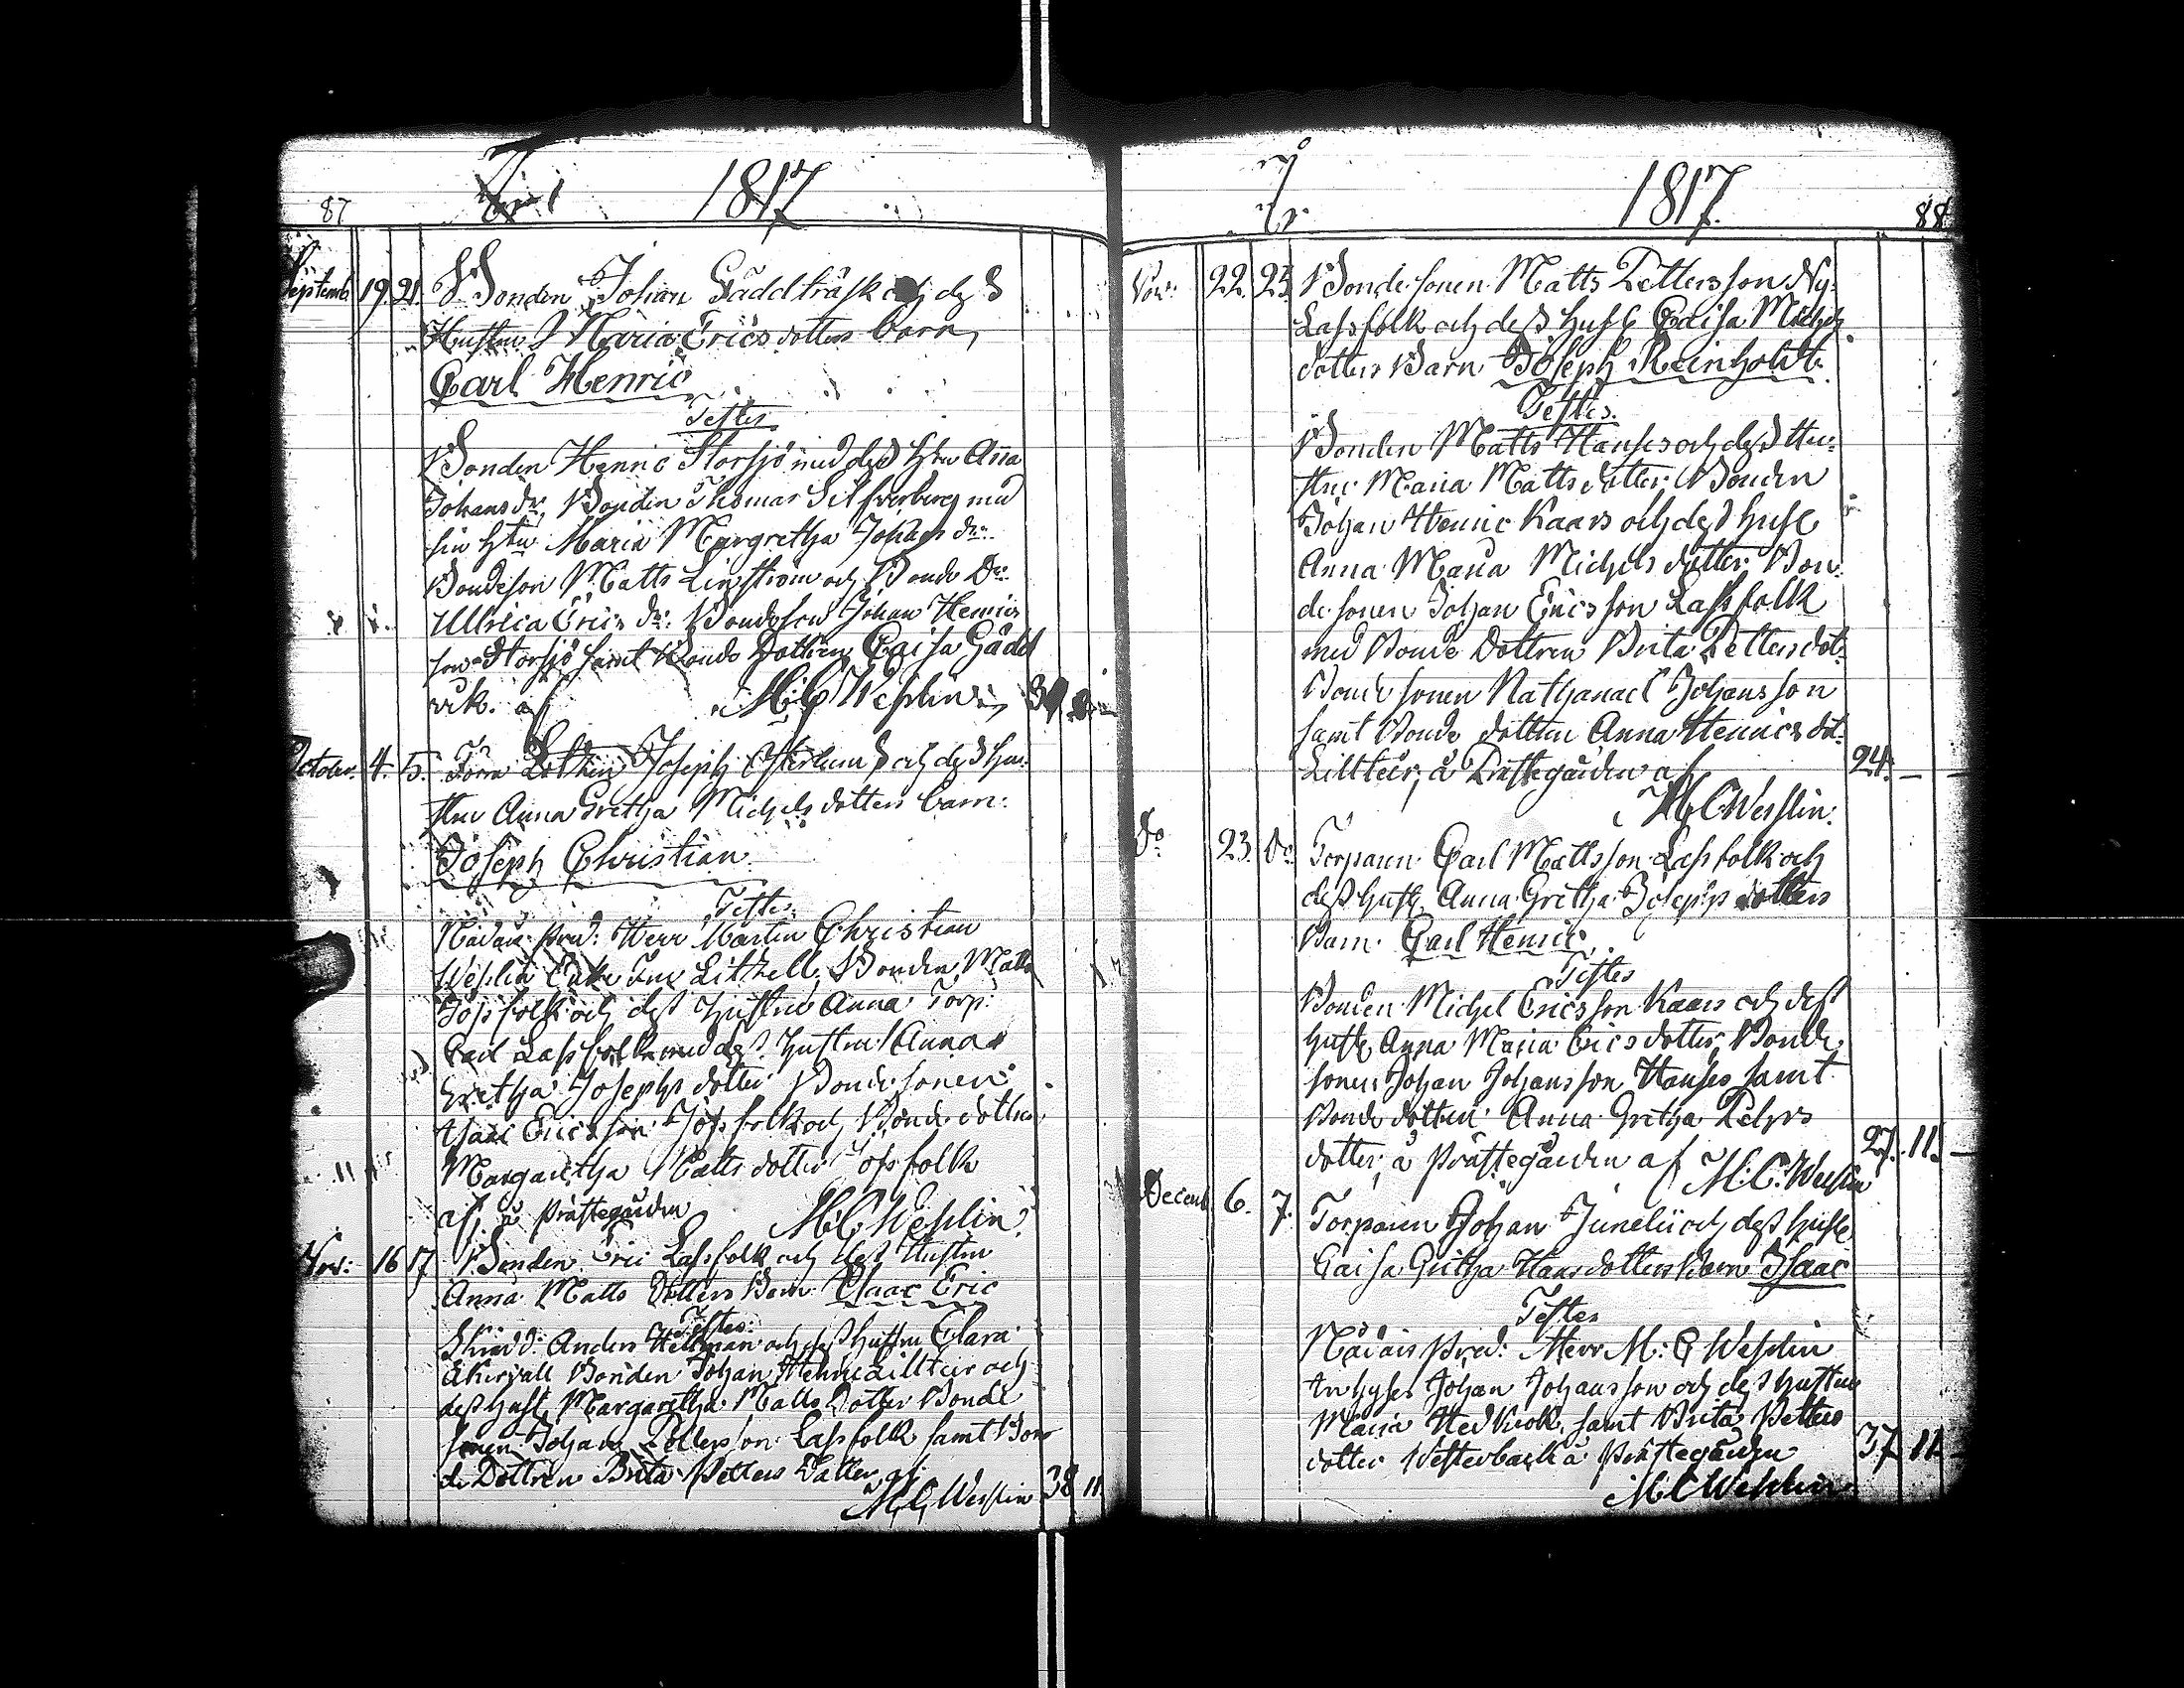 87
1817
Septemb. 19. 21. Bonden Johan Gäddträsk och dess
Hustru Maria Erics dotters barn,
Carl Henric
Testes
Bonden Henric Storsjö med dess Htru Anna
Johans dr. Bonden Thomas Silfverberg med
sin Htru Maria Margretha Johans dr.
Bondeson Matts Linström och Bonde Dr.
Ullrica Erics dr: Bondeson Johan Henrics
son Storsjö samt Bonde Dottren Caisa Gädd
vik. af M:C Wesslin
October. 4. 5. Joseph Österlund och dess Hu-
stru Anna Gretha Michels dotters barn:
Joseph Christian
Testes
Nådårs Pred: Herr Martin Christian
Wesslin Enke Fru Lithell, Bonden Matts
Jössfolk och dess Hustru Anna Torp:
Carl Lassfolk med dess Hustru Anna
Gretha Josephs dotter Bonde sonen
Ericsson Jössfolk och Bonde dottren
Margaretha Matts dotter Jössfolk
af, å Prästegården M:C Wesslin
Nov: 16 17 Bonden Eric Lassfolk och dess Hustru
Anna Matts Dotters Barn Isaac Eric
Testes:
Skrädd: Anders Hellman och dess Hustru Clara
Åkervall Bonden Johan Henric Lillteir och
dess Hust. Margaretha Matts Dotter Bonde
sonen Johan Pettersson Lassfolk samt Bon
de Dottren Brita Petters Datter af
M.C. Wesslin 38 11.
1817.
88
Nov: 22. 23. Bonde sonen Matts Pettersson Ny-
Lassfolk och dess Hust Caisa Michels
dotters Barn Joseph Reinholdt.
Testes.
Bonden Matts Hanses och dess Hu-
stru Maria Matts dotter. Bonden
Johan Henric Kaars och dess Hust
Anna Maria Michels dotter. Bon-
de sonen Johan Ericsson Lassfolk
med Bonde Dottren Brita Petters dot:
Bonde sonen Nathanael Johansson
samt Bonde dottren Anna Henrics dot:
Lillteir, å Prästegården af 24. — —
M C Wesslin.
Do 23. Do Torparen Carl Mattsson Lassfolk och
dess Hust. Anna Gretha Josephs dotters
Barn Carl Henric.
Testes
Bonden Michel Ericsson Kaars och dess
Hust. Anna Maria Erics dotter, Bonde
sonen Johan Johansson Hanses samt
Bonde dottren Anna Gretha Pehrs
dotter, å Prästegården af M:C:Wesslin 27. 11. —
Decemb 6. 7. Torparen Johan Junelii och dess Hust
Caisa Gretha Hansdotters barn Isaac
Testes
Nådårs Pred: Herr M:C Wesslin
Inhyses Johan Johansson och dess Hustru
Maria Hedkrok, samt Brita Petters
dotter Westerback å Prästegården 37 11 —
M C Wesslin